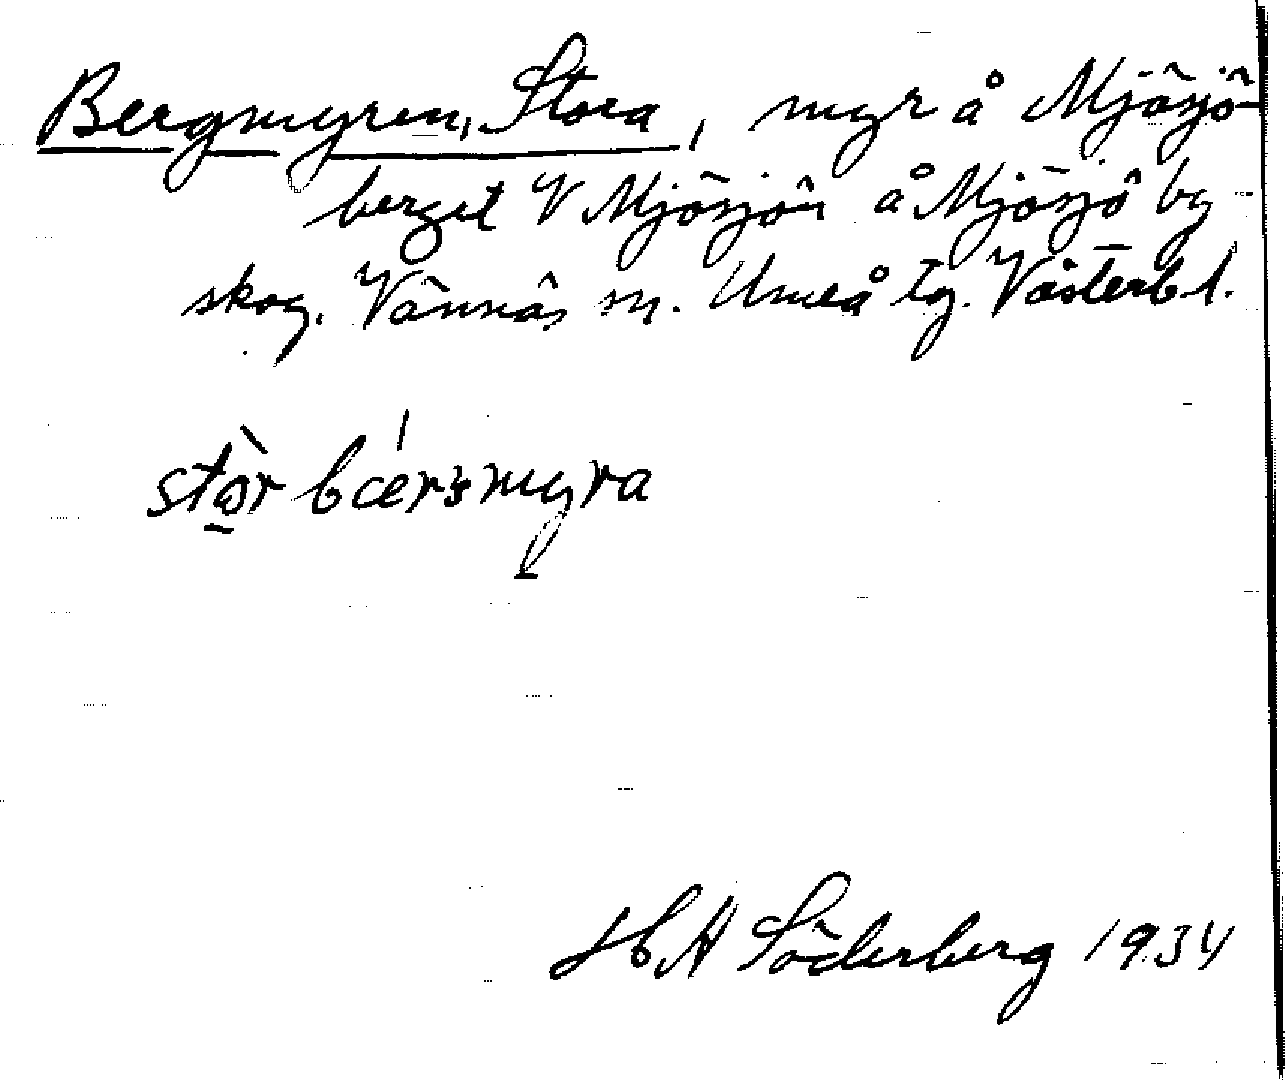 Bergmyren, Stora, myr å Mjösjö-
berget V Mjösjön å Mjösjö by
skog. Vännäs sn. Umeå tg. Västerb l.
stor bærsmyra
H A Söderberg 1934